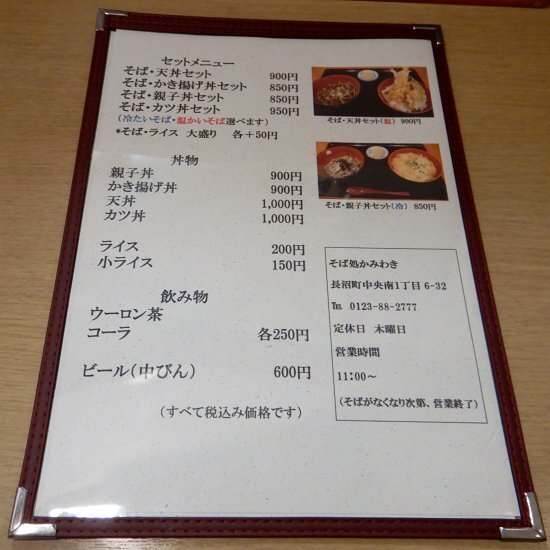 セットメニュー
そば・天丼セット 900円
そば・かき揚げ丼セット 850円
そば・親子丼セット 850円
そば・カツ丼セット 950円
(冷たいそば・温かいそば選べます)
*そば・ライス 大盛り 各+50円
そば・天丼セット(温) 900円
そば・親子丼セット(冷) 850円
丼物
親子丼 900円
かき揚げ丼 900円
天丼 1,000円
カツ丼 1,000円
ライス 200円
小ライス 150円
飲み物
ウーロン茶
コーラ 各250円
ビール(中びん) 600円
(すべて税込み価格です)
そば処かみわき
長沼町中央南1丁目6-32
℡ 0123-88-2777
定休日 木曜日
営業時間
11:00~
(そばがなくなり次第、営業終了)